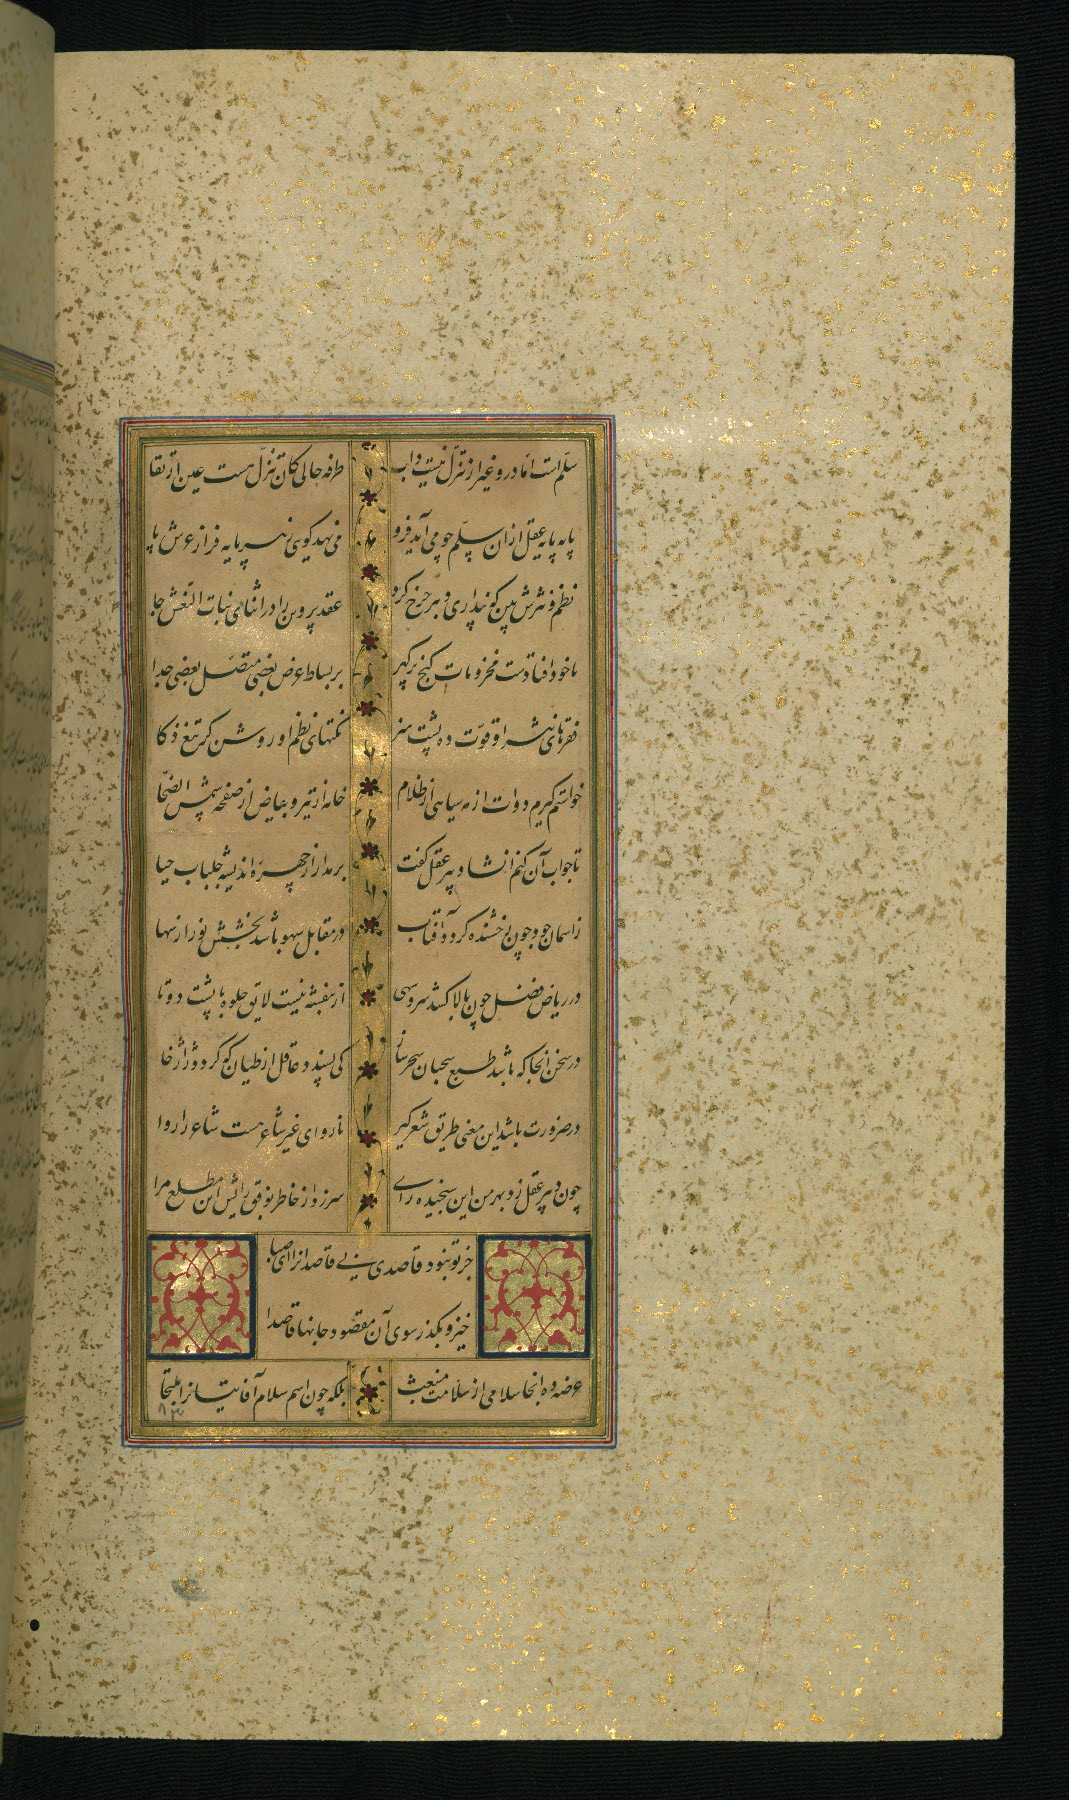 سلّم است امّا درو غیر از تنزّل نیست داب
طرفه حالی کان تنزّل هست عین ارتقا
پایه پایه عقل ازان سلّم چو می آید فرو
می نهد کویی ز سر پایه فراز عرش پا
نظم و نثرش بین که پنداری دبیر چرخ کرد
عقد پروین را در اثنای نبات النعش جا
یا خود افتادست مخزونات کنج پر کهر
بر بساط عرض بعضی متصل بعضی جدا
فقرهای نثر او قوّت ده پشت هنر
نکتهای نظم او روشن کر تیغ ذکا
خواستم کیرم دوات از مه سیاهی از ظلام
خامه از تیر و بیاض از صفحه شمس الضحا
تا جواب آن کنم انشاد پیر عقل کفت
بر مدار از چهره اندیشه جلباب حیا
ز اسمان جود چون رخشنده کردد آفتاب
در مقابل سهو باشد بخشش نور از سها
در ریاض فضل چون بالا کشد سرو سهی
از بنفشه نیست لایق جلوه با پشت دوتا
در سخن انجا که باشد طبع سحبان سحر ساز
کی پسندد عاقل از طیان که کردد ژاژخا
در ضرورت باشد این معنی طریق شعر کیر
ناروای غیر شاعر هست شاعر را روا
چون دبیر عقل زد بهر من این سنجیده رای
سر زد از خاطر بوفق رایش این مطلع مرا
جز تو نبود قاصدی بی قاصدانرا ای صبا
خیز و بکذر سوی آن مقصود جانها قاصدا
عرضه ده انجا سلامی از سلامت منبعث
بلکه چون اسم سلام آفاتیانرا ملتجا